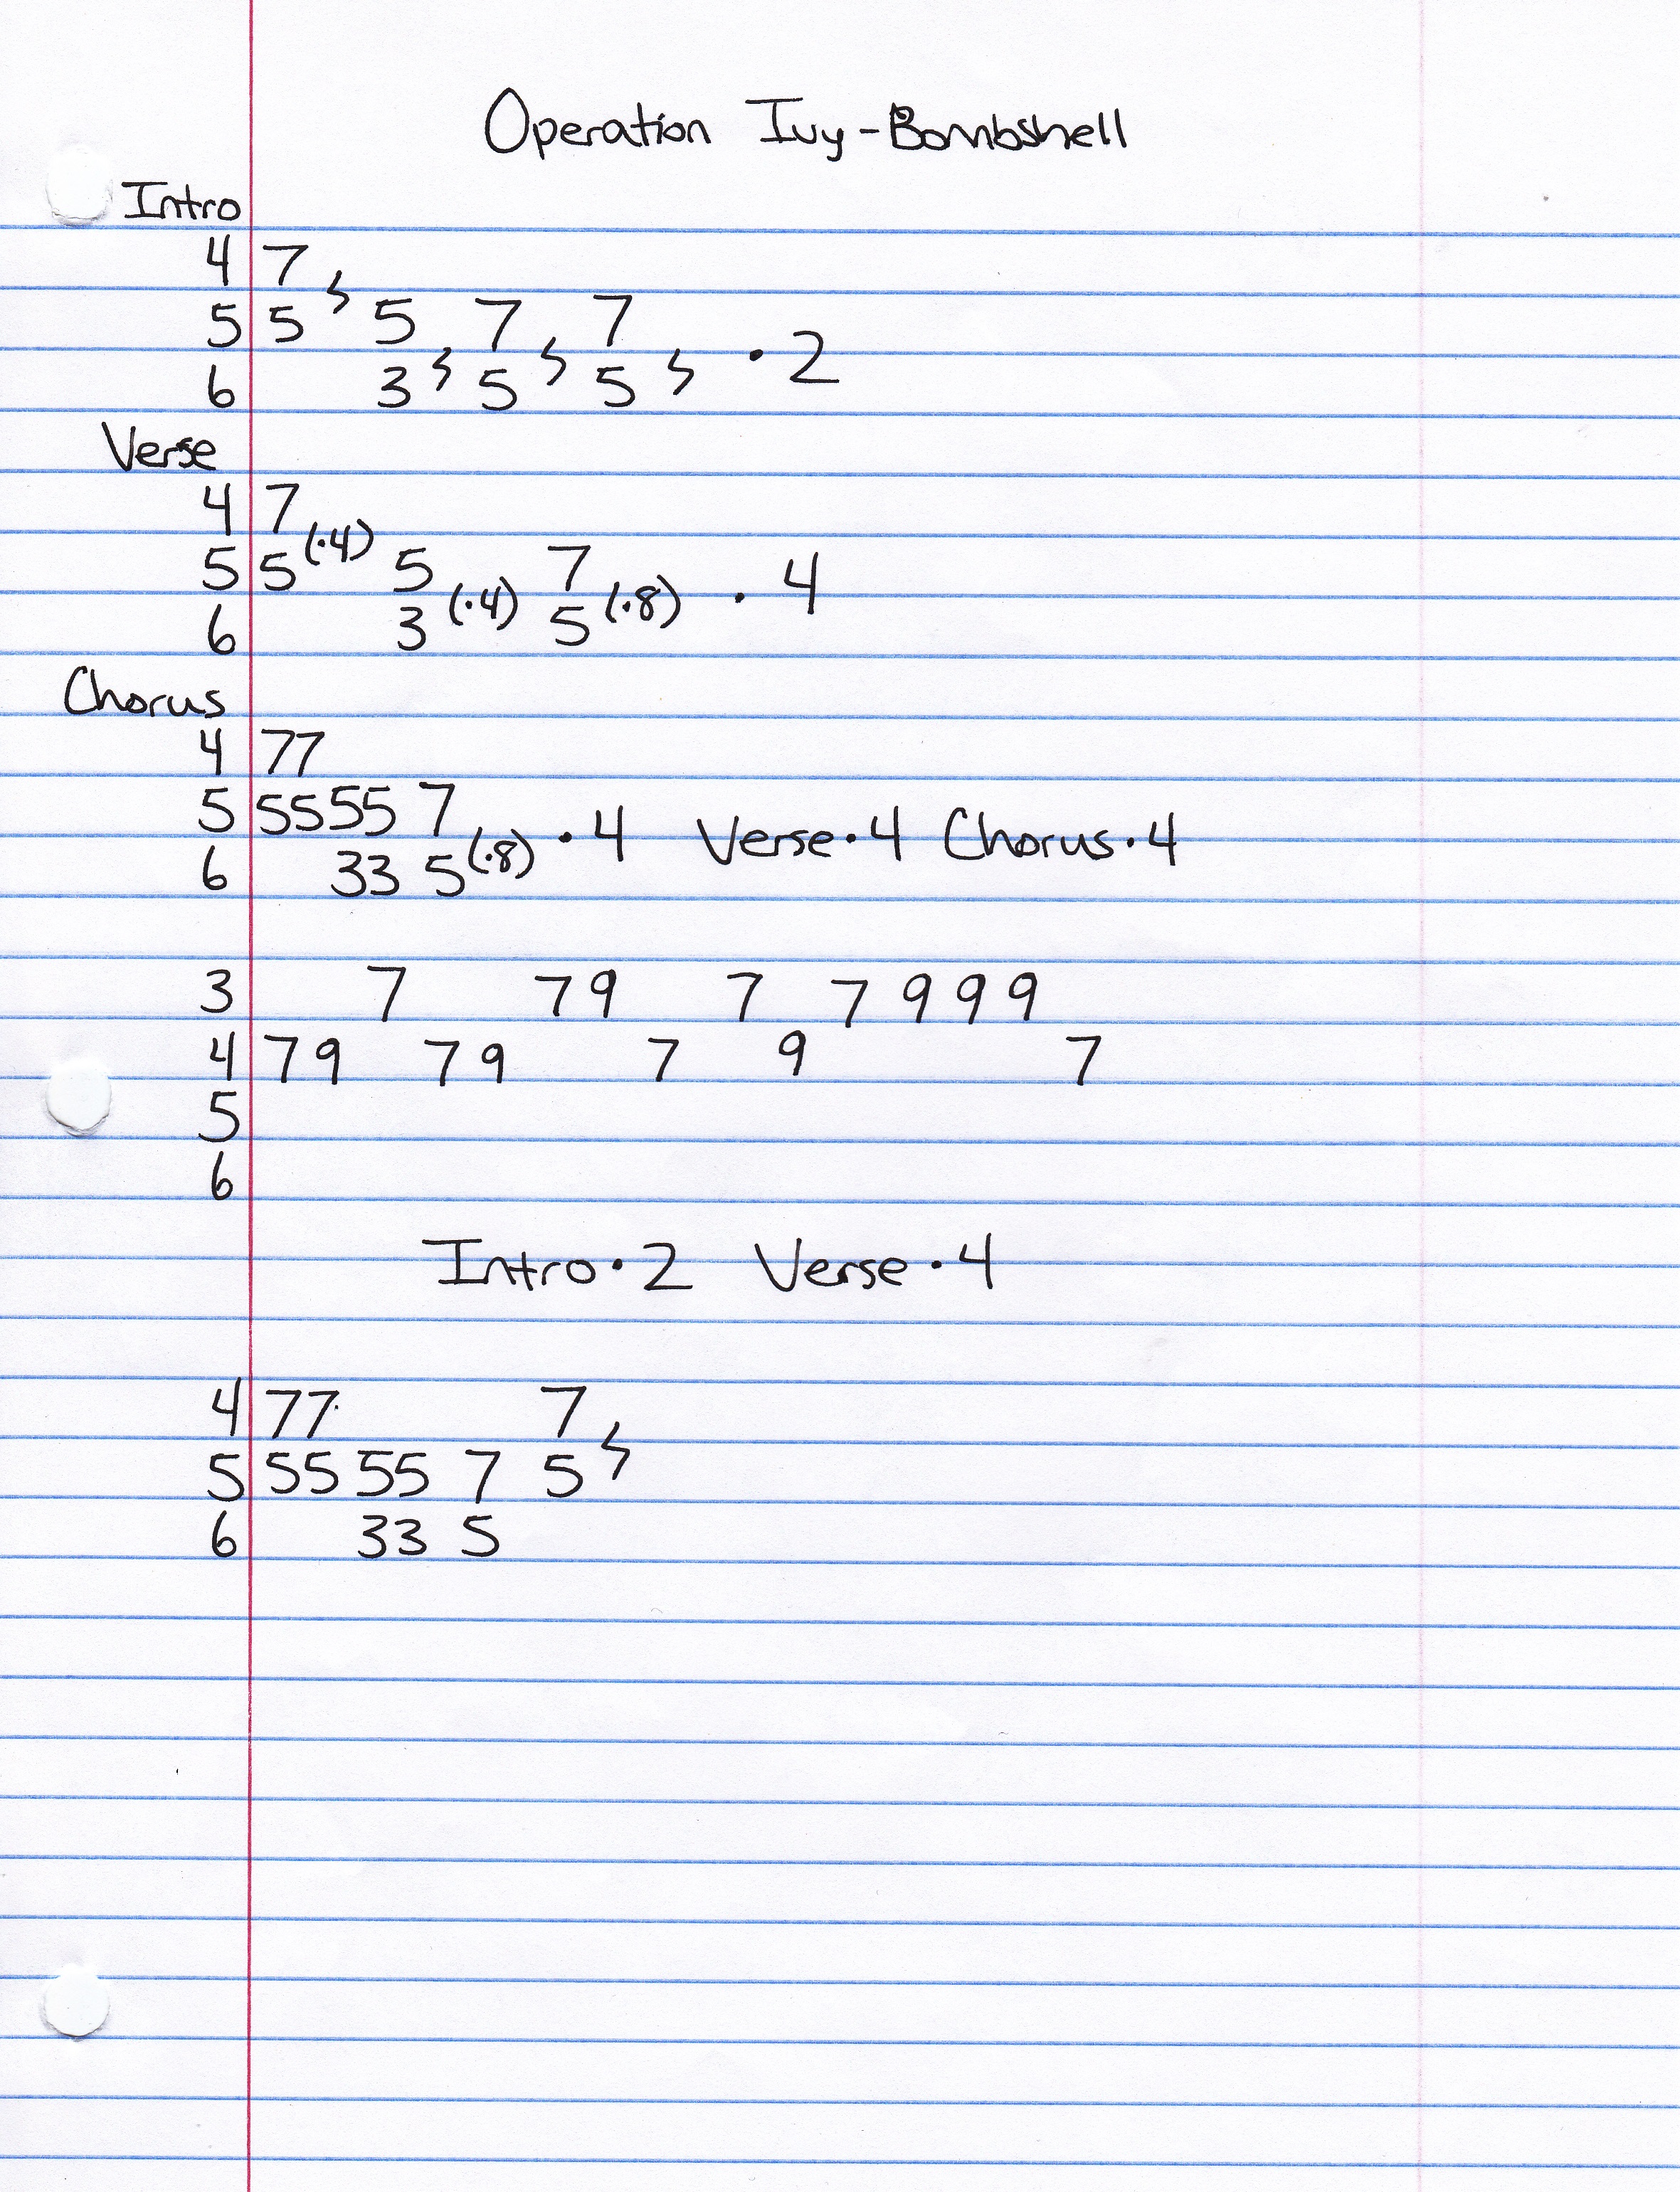 Operation Ivy-Bombshell
Intro
4 7
5 5 5 7 7
6 3 5 5 · 2
Verse
4 7
5 5 (·4) 5 7
6 3 (·4) 5 (·8) · 4
Chorus
4 77
5 5555 7
6 33 5 (·8) · 4 Verse · 4 Chorus · 4
3 7 7 9 7 7 9 9 9
4 7 9 7 9 7 9 7
5
6
Intro · 2 Verse · 4
4 77 7
5 55 55 7 5
6 33 5